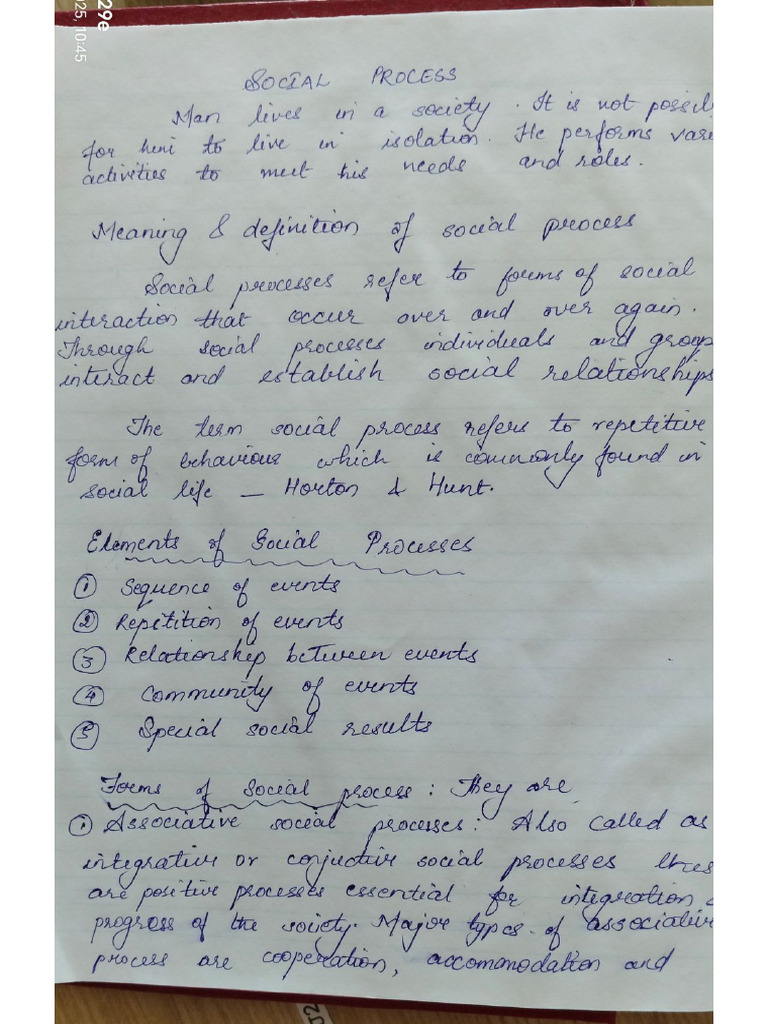 29e
025, 10:45
SOCIAL PROCESS
Man lives in a society. It is not possibl
for him to live in isolation. He performs vari
activities to meet his needs and roles.
Meaning & definition of social process
Social processes refer to forms of social
interaction that occur over and over again.
Through social processes individuals and group
interact and establish social relationships
The term social process refers to repetitive
form of behaviour which is commonly found in
social life – Horton & Hunt.
Elements of Social Processes
① Sequence of events
② Repetition of events
③ Relationship between events
④ Community of events
⑤ Special social results
Forms of social process: They are
① Associative social processes: Also called as
integrative or conjuctive social processes
are positive processes essential for integration
progress of the society. Major types of associative
process are cooperation, accommodation and